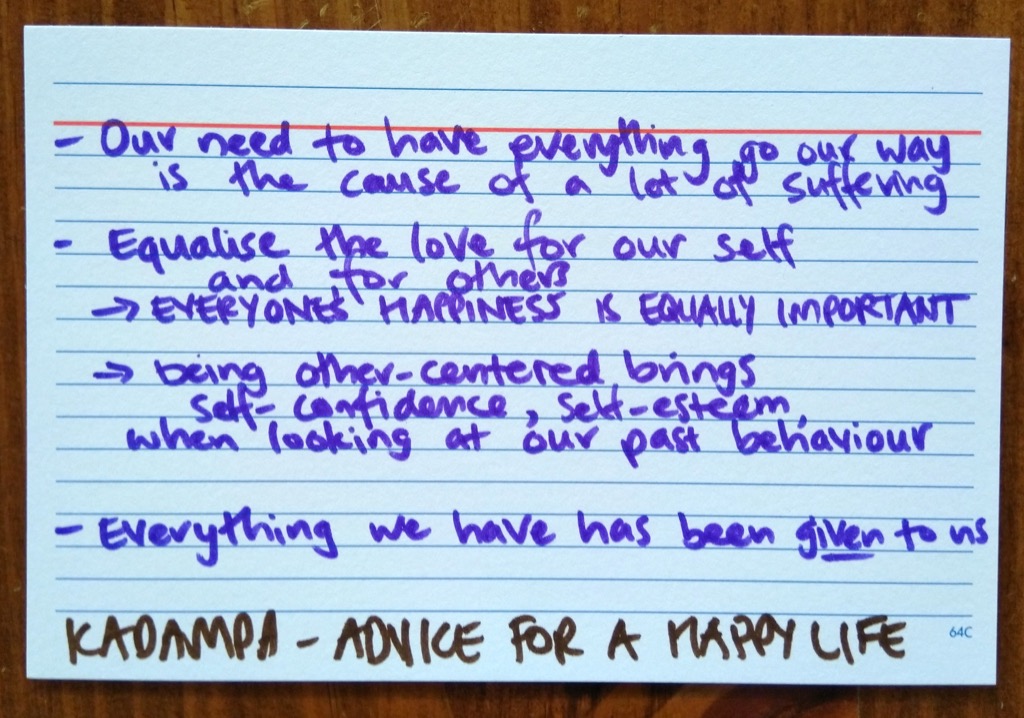 - Our need to have everything go our way
is the cause of a lot of suffering
- Equalise the love for our self
and for others
→ EVERYONES HAPPINESS IS EQUALLY IMPORTANT
→ being other-centered brings
self-confidence, self-esteem,
when looking at our past behaviour
- Everything we have has been given to us
KADAMPA - ADVICE FOR A HAPPY LIFE
64C